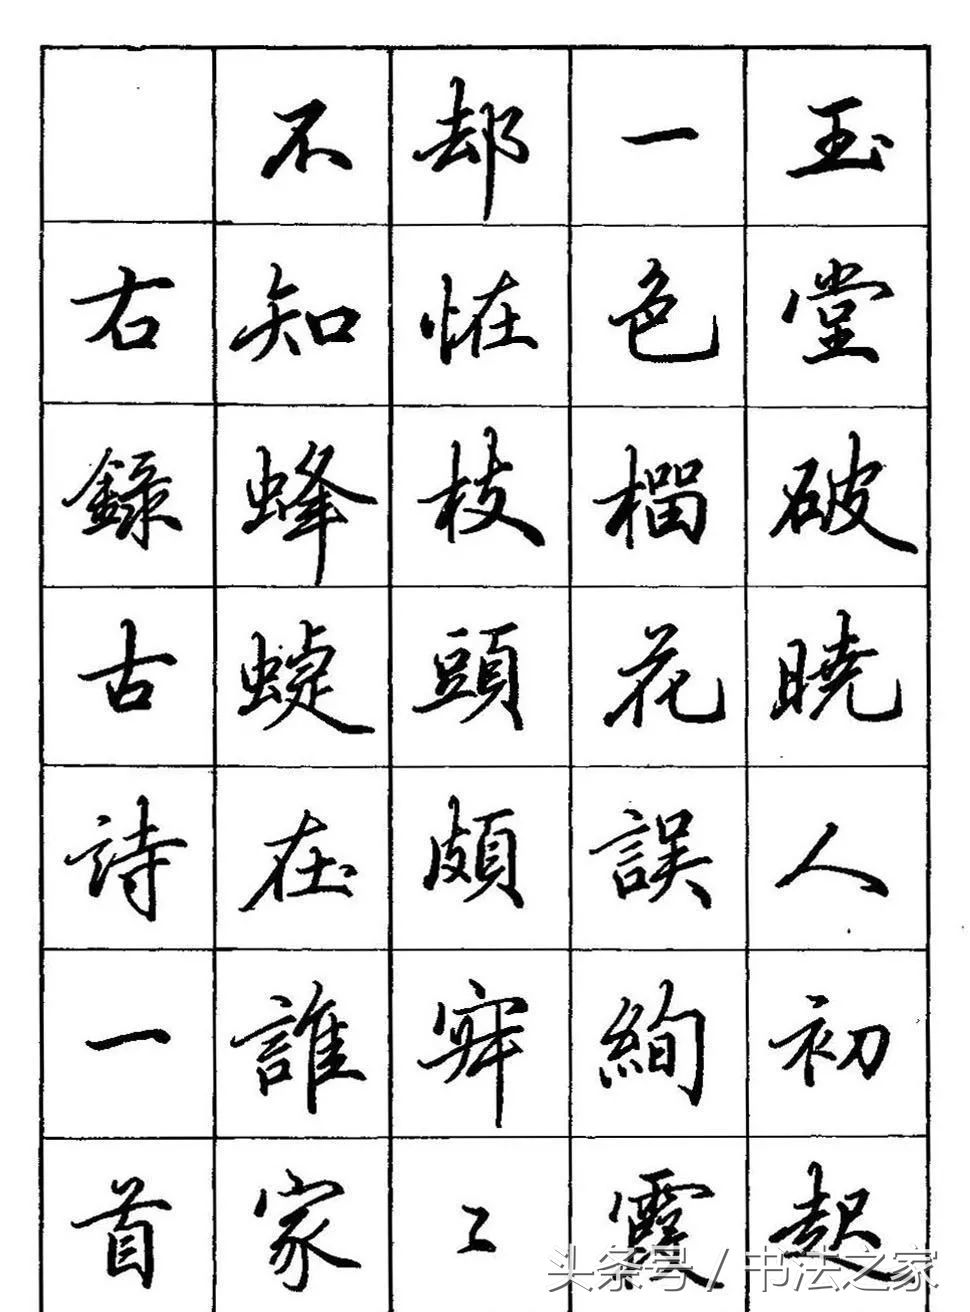 玉堂破曉人初起
一色榴花誤絢霞
却恠枝頭頗寂〻
不知蜂蜨在誰家
右錄古詩一首
头条号 / 书法之家